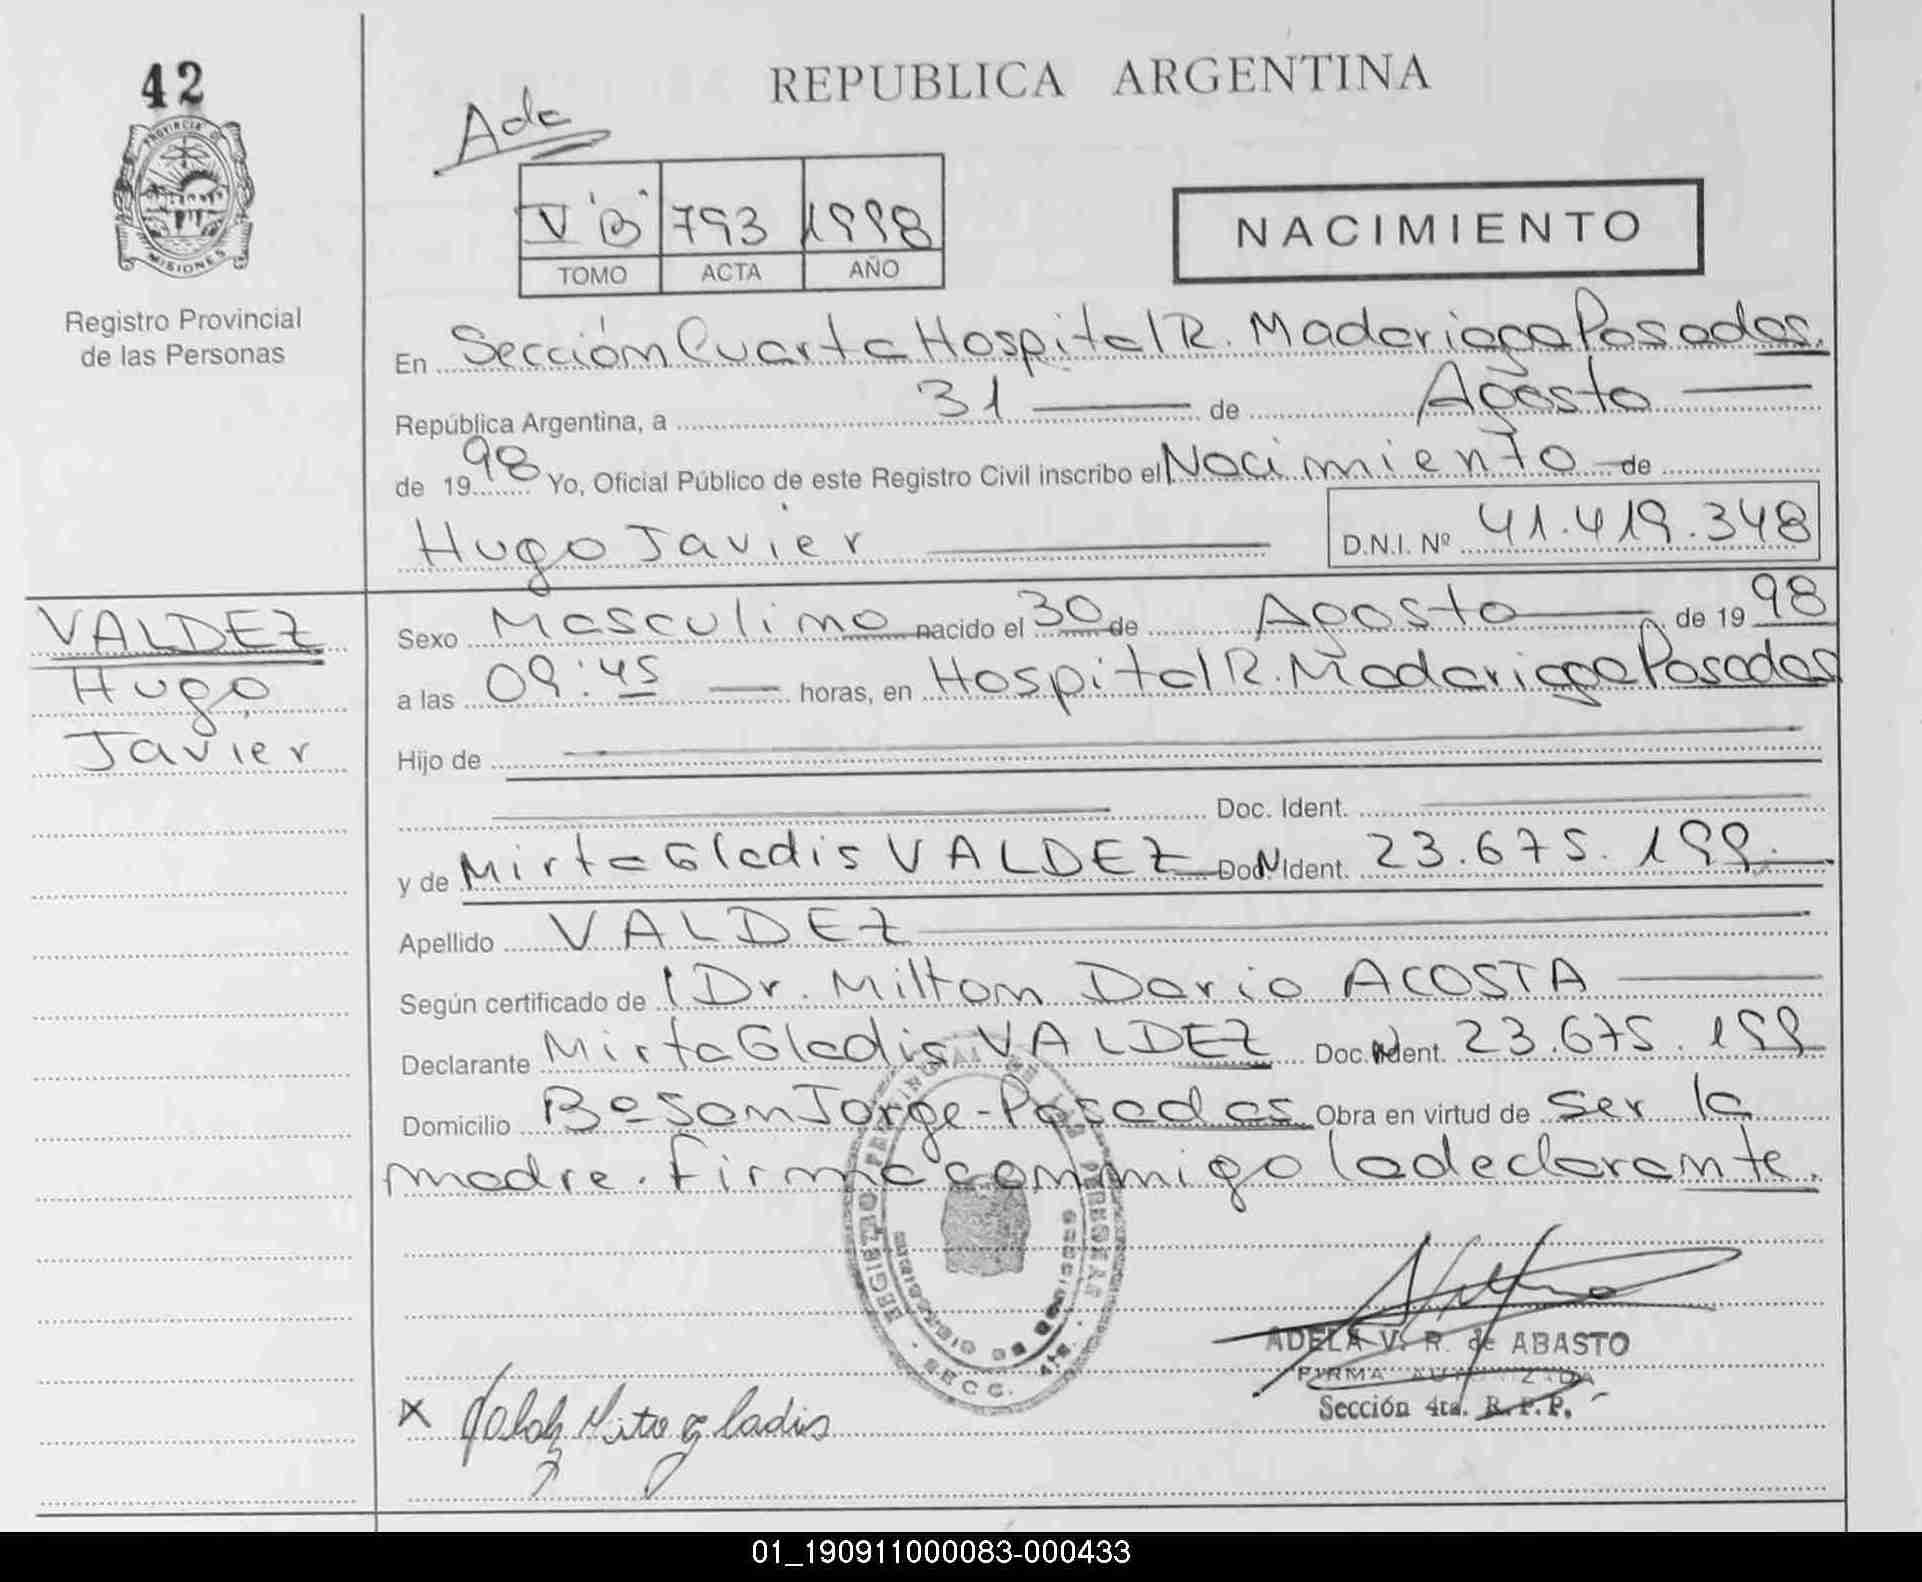 42
REPUBLICA ARGENTINA
Ada
PROVINCIA DE
MISIONES
V "B" 793 1998
TOMO ACTA AÑO
NACIMIENTO
Registro Provincial
de las Personas
En Sección Cuarta Hospital R. Madariaga Posadas.
República Argentina, a 31 de Agosto
de 1998 Yo, Oficial Público de este Registro Civil inscribo el Nacimiento de
Hugo Javier D.N.I. Nº 41.419.348
VALDEZ
Hugo
Javier
Sexo Masculino nacido el 30 de Agosto de 1998
a las 09:45 horas, en Hospital R. Madariaga Posadas
Hijo de
Doc. Ident.
y de Mirta Gladis VALDEZ Doc. Ident. 23.675.199.
Apellido VALDEZ
Según certificado de Dr. Milton Dario ACOSTA
Declarante Mirta Gladis VALDEZ Doc. Ident. 23.675.199
Domicilio Bº San Jorge - Posadas Obra en virtud de ser la
madre. Firma conmigo la declarante.
REGISTRO PROVINCIAL DE LAS PERSONAS
SECC. 4ta.
ADELA V. R. de ABASTO
FIRMA AUTORIZADA
Sección 4ta. R.P.P.
x Valdez Mirta gladis
01_190911000083-000433